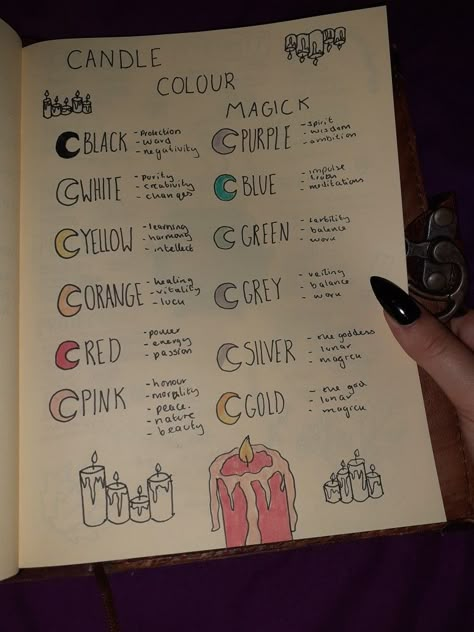 CANDLE
COLOUR
MAGICK
BLACK
- Protection
- ward
- negativity
PURPLE
- spirit
- wisdom
- ambition
WHITE
- purity
- creativity
- changes
BLUE
- impulse
- meditations
YELLOW
- learning
- harmony
- intellect
GREEN
- fertility
- balance
- work
ORANGE
- healing
- vitality
- luck
GREY
- veiling
- balance
- work
RED
- power
- energy
- passion
SILVER
- the goddess
- lunar
- magick
PINK
- honour
- morality
- peace
- nature
- beauty
GOLD
- the god
- lunar
- magick